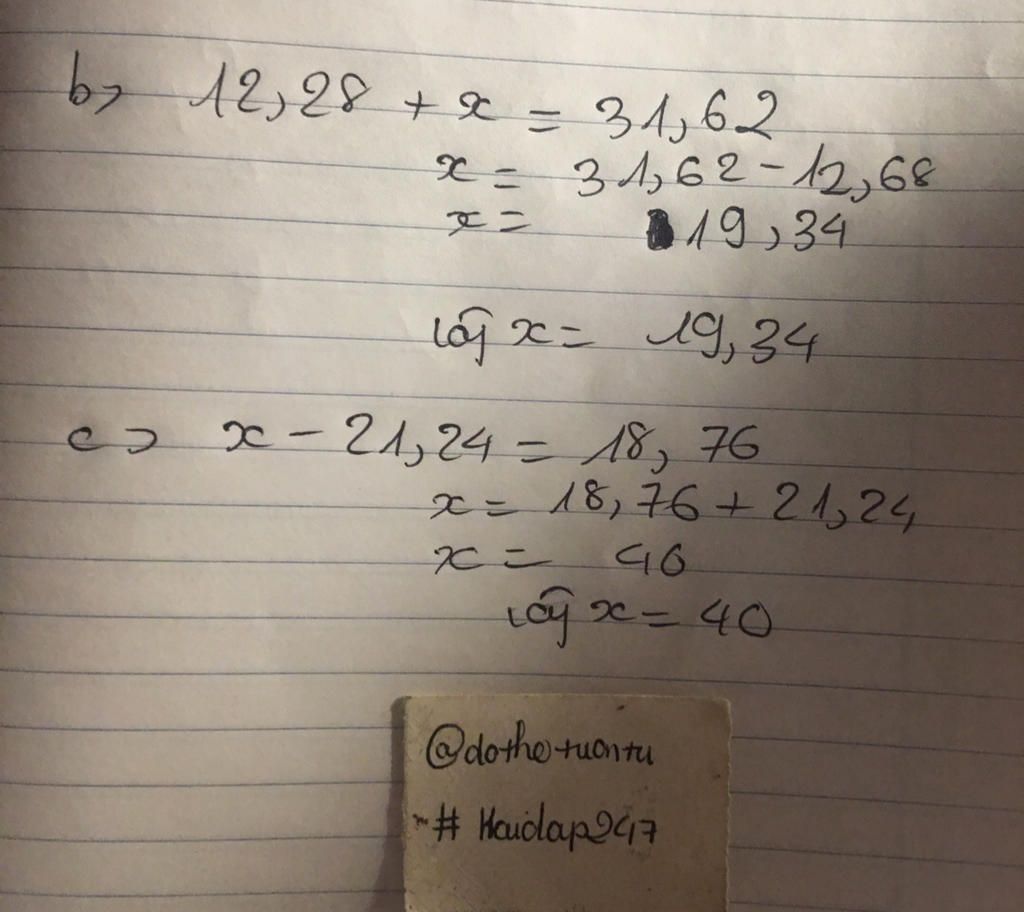 b> 12,28 + x = 31,62
x = 31,62 - 12,68
x = 19,34
Vậy x = 19,34
c> x - 21,24 = 18,76
x = 18,76 + 21,24
x = 40
Vậy x = 40
@dothetuantu
#Hoidap247